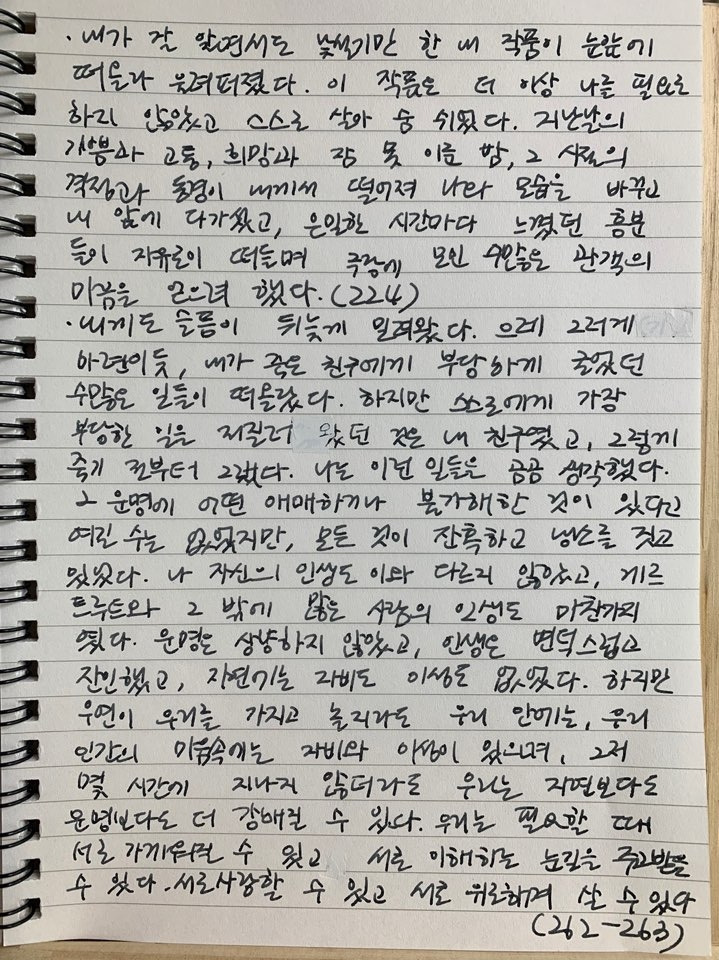 · 내가 잘 알면서도 낯설기만 한 내 작품이 눈앞에
떠올라 울려퍼졌다. 이 작품은 더 이상 나를 필요로
하지 않았고 스스로 살아 숨 쉬었다. 지난날의
기쁨과 고통, 희망과 잠 못 이룬 밤, 그 시절의
격정과 동경이 내게서 떨어져 나와 모습을 바꾸고
내 앞에 다가섰고, 은밀한 시간마다 느꼈던 흥분
들이 자유로이 떠들며 극장에 모인 수많은 관객의
마음을 얻으려 했다. (224)
· 내게도 슬픔이 뒤늦게 밀려왔다. 으레 그러게
마련이듯, 내가 죽은 친구에게 부당하게 굴었던
수많은 일들이 떠올랐다. 하지만 스스로에게 가장
부당한 일을 저질러 왔던 것은 내 친구였고, 그렇게
죽기 전부터 그랬다. 나는 이런 일들을 곰곰 생각했다.
그 운명에 어떤 애매하거나 불가해한 것이 있다고
여길 수는 없었지만, 모든 것이 잔혹하고 냉소를 짓고
있었다. 나 자신의 인생도 이와 다르지 않았고, 게르
트루트와 그 밖에 많은 사람의 인생도 마찬가지
였다. 운명은 상냥하지 않았고, 인생은 변덕스럽고
잔인했고, 자연에는 자비도 이성도 없었다. 하지만
우연이 우리를 가지고 놀지라도 우리 안에는, 우리
인간의 마음속에는 자비와 이성이 있으며, 그저
몇 시간에 지나지 않더라도 우리는 자연보다도
운명보다도 더 강해질 수 있다. 우리는 필요할 때
서로 가까워질 수 있고 서로 이해하는 눈길을 주고받을
수 있다. 서로 사랑할 수 있고 서로 위로하며 살 수 있다
(262-263)